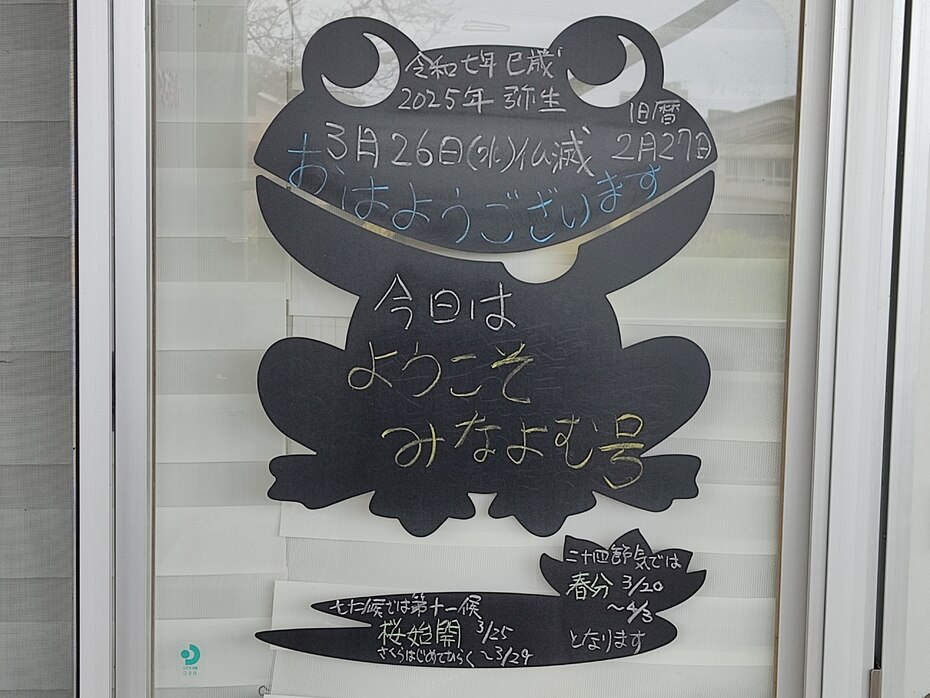 令和七年 巳歳
2025年 弥生
旧暦
3月26日(水)仏滅 2月27日
おはようございます
今日は
ようこそ
みなよむ号
二十四節気では
春分 3/20
～4/3
となります
七十二候では第十一候
桜始開 3/25
さくらはじめてひらく ～3/29